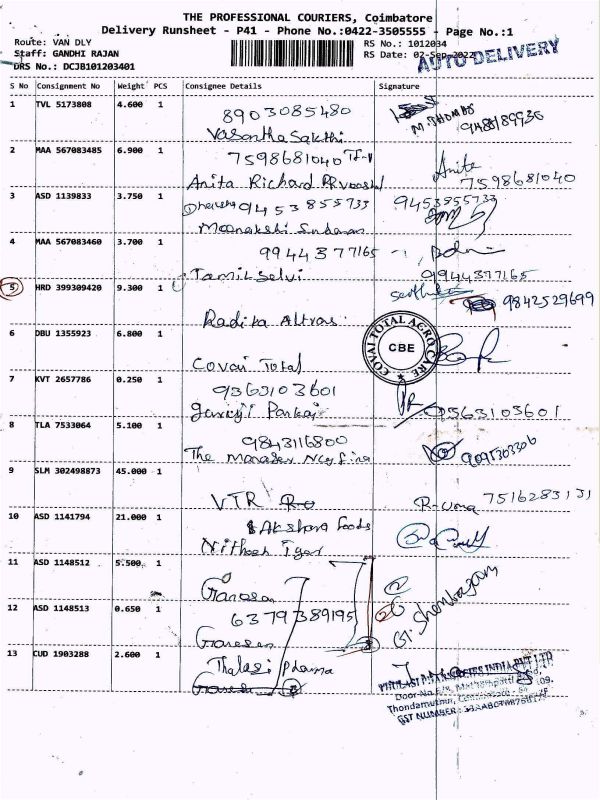 THE PROFESSIONAL COURIERS, Coimbatore
Delivery Runsheet - P41 - Phone No.:0422-3505555 - Page No.:1
Route: VAN DLY
Staff: GANDHI RAJAN
DRS No.: DCJB101203401
RS No.: 1012034
RS Date: 02-Sep-2022
AUTO DELIVERY
S No Consignment No Weight PCS Consignee Details Signature
1 TVL 5173808 4.600 1 8903085480
Vasantha Sakthi
M. THOMAS
2 MAA 567083485 6.900 1 7598681040
Anita Richard
Anita
7598681040
3 ASD 1139833 3.750 1 9453855733
Meenakshi Sundaram
9453855733
4 MAA 567083460 3.700 1 9944377165
Tamil Selvi
9944377165
5 HRD 399309420 9.300 1
Radika Altras
9842529699
6 DBU 1355923 6.800 1
Covai Total
COVAI TOTAL AGRO CARE
CBE
7 KVT 2657786 0.250 1 9363103601
Pankaj
8 TLA 7533064 5.100 1 9843116800
The Manager
9095303306
9 SLM 302498873 45.000 1
VTR
R-Uma 7516283131
10 ASD 1141794 21.000 1 Akshara Foods
11 ASD 1148512 5.500 1
Ganesan
12 ASD 1148513 0.650 1 6379389195
Ganesan
13 CUD 1903288 2.600 1 Thulasi Pharma
INDIA PVT LTD
Door No.
Thondamuthur
GST NUMBER